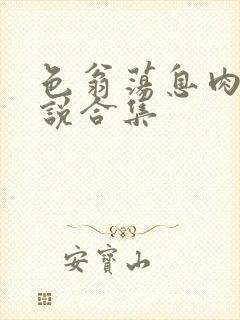 色翁荡息肉
説合集
安寶山